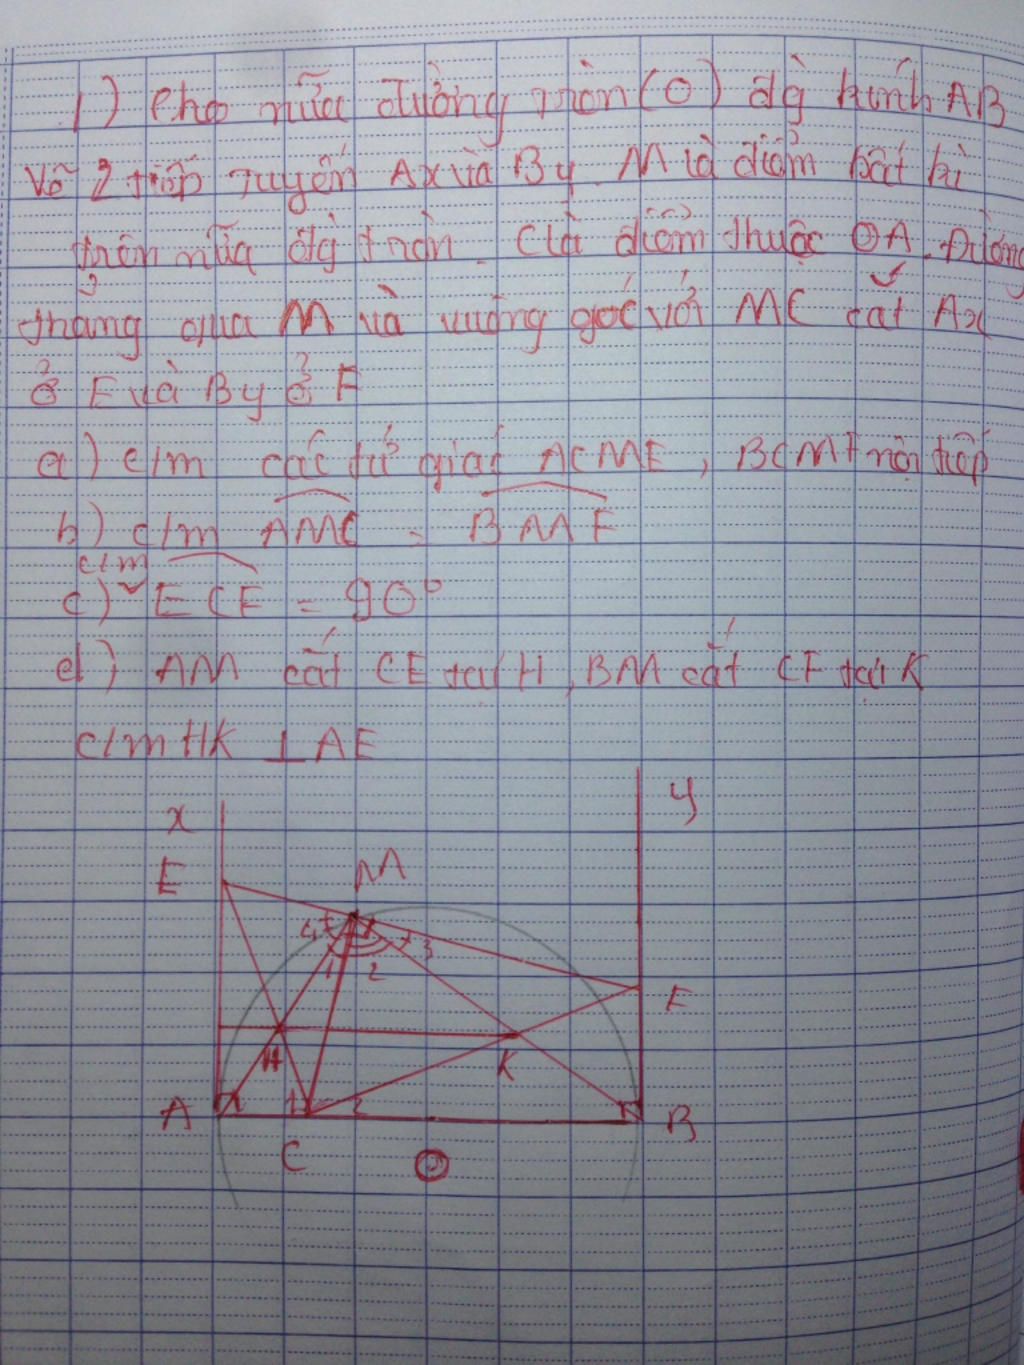 1) Cho nửa đường tròn (O) đg kính AB
Vẽ 2 tiếp tuyến Ax và By. M là điểm bất kì
trên nửa đg tròn. C là điểm thuộc OA. Đường
thẳng qua M và vuông góc với MC cắt Ax
ở E và By ở F
a) c/m các tứ giác ACME, BCMF nội tiếp
b) c/m AMC = BMF
c) c/m ECF = 90°
d) AM cắt CE tại H, BM cắt CF tại K
c/m HK ⊥ AE
x y
E M
4 3
1 2
F
H K
A 1 2 B
C O